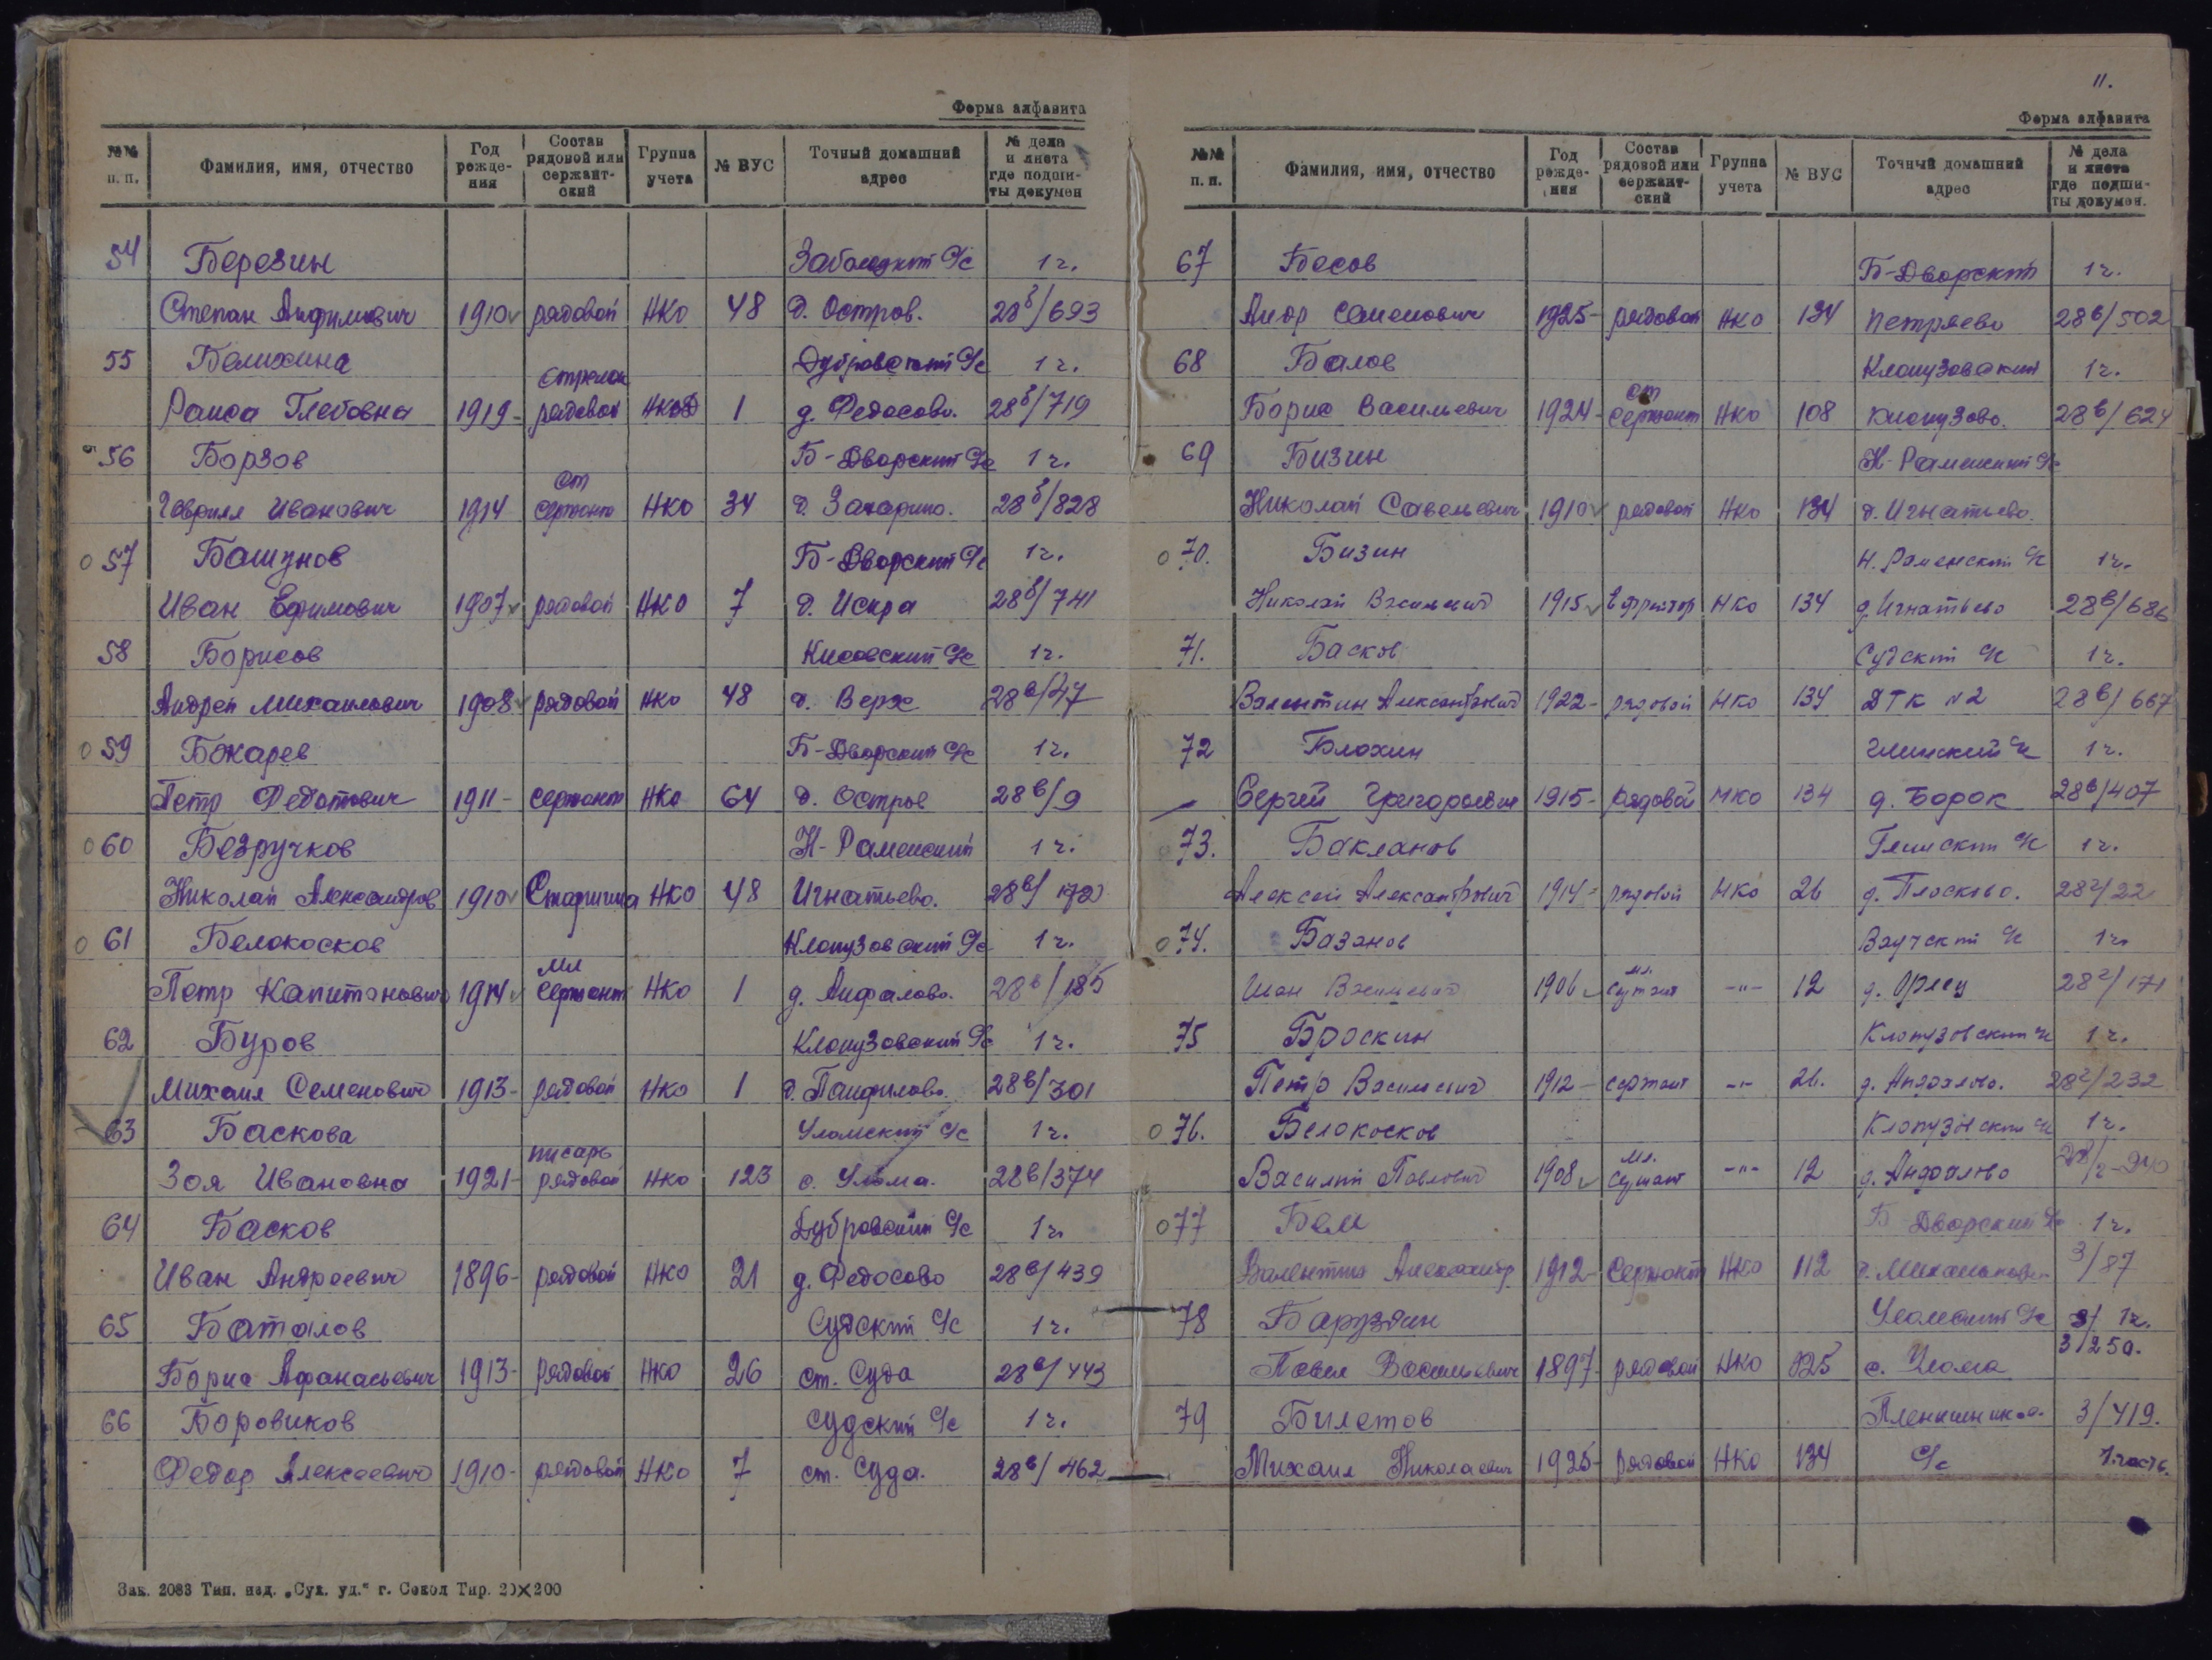 Форма алфавита
№№ п. п. Фамилия, имя, отчество Год рожде-ния Состав рядовой или сержант-ский Группа учета № ВУС Точный домашний адрес № дела и листа где подши-ты докумен
54 Березин с/с 1 ч.
Степан 1910 рядовой НКО 48 д. Остров. 28б/693
55 Белихина Дубровский с/с 1 ч.
стрелок
Раиса Глебовна 1919- рядовой НКО 1 д. Федосово. 28б/719
56 Борзов Б-Дворский с/с 1 ч.
ст
Гаврилл Иванович 1914 сержант НКО 34 д. Захарино. 28б/828
57 Башунов Б-Дворский с/с 1 ч.
Иван Ефимович 1907 рядовой НКО 7 д. Искра 28б/741
58 Борисов Кисовский с/с 1 ч.
Андрей Михайлович 1908 рядовой НКО 48 д. Верх 28в/47
59 Бокарев Б-Дворский с/с 1 ч.
Петр Федотович 1911- сержант НКО 64 д. Остров 28в/9
60 Безручков Н-Раменский 1 ч.
Николай Александров 1910 Старшина НКО 48 Игнатьево. 28в/172
61 Белокосков Клопузовский с/с 1 ч.
мл
Петр Капитонович 1914 сержант НКО 1 д. Анфалово. 28в/185
62 Буров Клопузовский с/с 1 ч.
Михаил Семенович 1913- рядовой НКО 1 д. Панфилово. 28в/301
63 Баскова Уломский с/с 1 ч.
писарь
Зоя Ивановна 1921- рядовой НКО 123 с. Улома. 28в/374
64 Басков Дубровский с/с 1 ч.
Иван Андреевич 1896- рядовой НКО 21 д. Федосово 28в/439
65 Баталов Судский с/с 1 ч.
Борис Афанасьевич 1913- рядовой НКО 26 ст. Суда 28в/443
66 Боровиков Судский с/с 1 ч.
Федор Алексеевич 1910- рядовой НКО 7 ст. Суда. 28в/462
Зак. 2083 Тип. изд. „Сух. уд.“ г. Сокол Тир. 20×200
11.
Форма алфавита
№№ п. п. Фамилия, имя, отчество Год рожде-ния Состав рядовой или сержант-ский Группа учета № ВУС Точный домашний адрес № дела и листа где подши-ты докумен.
67 Босов Б-Дворский 1 ч.
Семенович 1925- рядовой НКО 134 Петряево 28в/502
68 Балов Клопузовский 1 ч.
ст
Борис Васильевич 1924- сержант НКО 108 Клопузово. 28в/624
69 Бизин Н-Раменский с/с
Николай Савельевич 1910 рядовой НКО 134 д. Игнатьево.
70. Бизин Н. Раменский с/с 1 ч.
Николай Васильевич 1915 Ефрейтор НКО 134 д. Игнатьево 28в/686
71. Басков Судский с/с 1 ч.
Валентин Александрович 1922- рядовой НКО 134 ДТК №2 28в/667
72 Блохин Глинский с/с 1 ч.
Сергей Григорьевич 1915- рядовой НКО 134 д. Борок 28в/407
73. Бакланов Глинский с/с 1 ч.
Алексей Александрович 1914- рядовой НКО 26 д. Плосково. 28г/22
74. Базанов Ваучский с/с 1 ч.
мл.
Иван Васильевич 1906 сержант -"- 12 д. 28г/171
75 Броскин Клопузовский с/с 1 ч.
Петр Васильевич 1912- сержант -"- 26. д. Анфалово. 28г/232
76. Белокосков Клопузовский с/с 1 ч.
мл.
Василий Павлович 1908 сержант -"- 12 д. Анфалово 28/г-240
77 Бем Б Дворский с/с 1 ч.
Валентин Александр 1912- Сержант НКО 112 3/87
78 Баруздин Уломский с/с 1 ч.
Павел Васильевич 1897- рядовой НКО 125 с. Улома 3/250.
79 Билетов 3/419.
Михаил Николаевич 1925- рядовой НКО 134 с/с 1 часть.